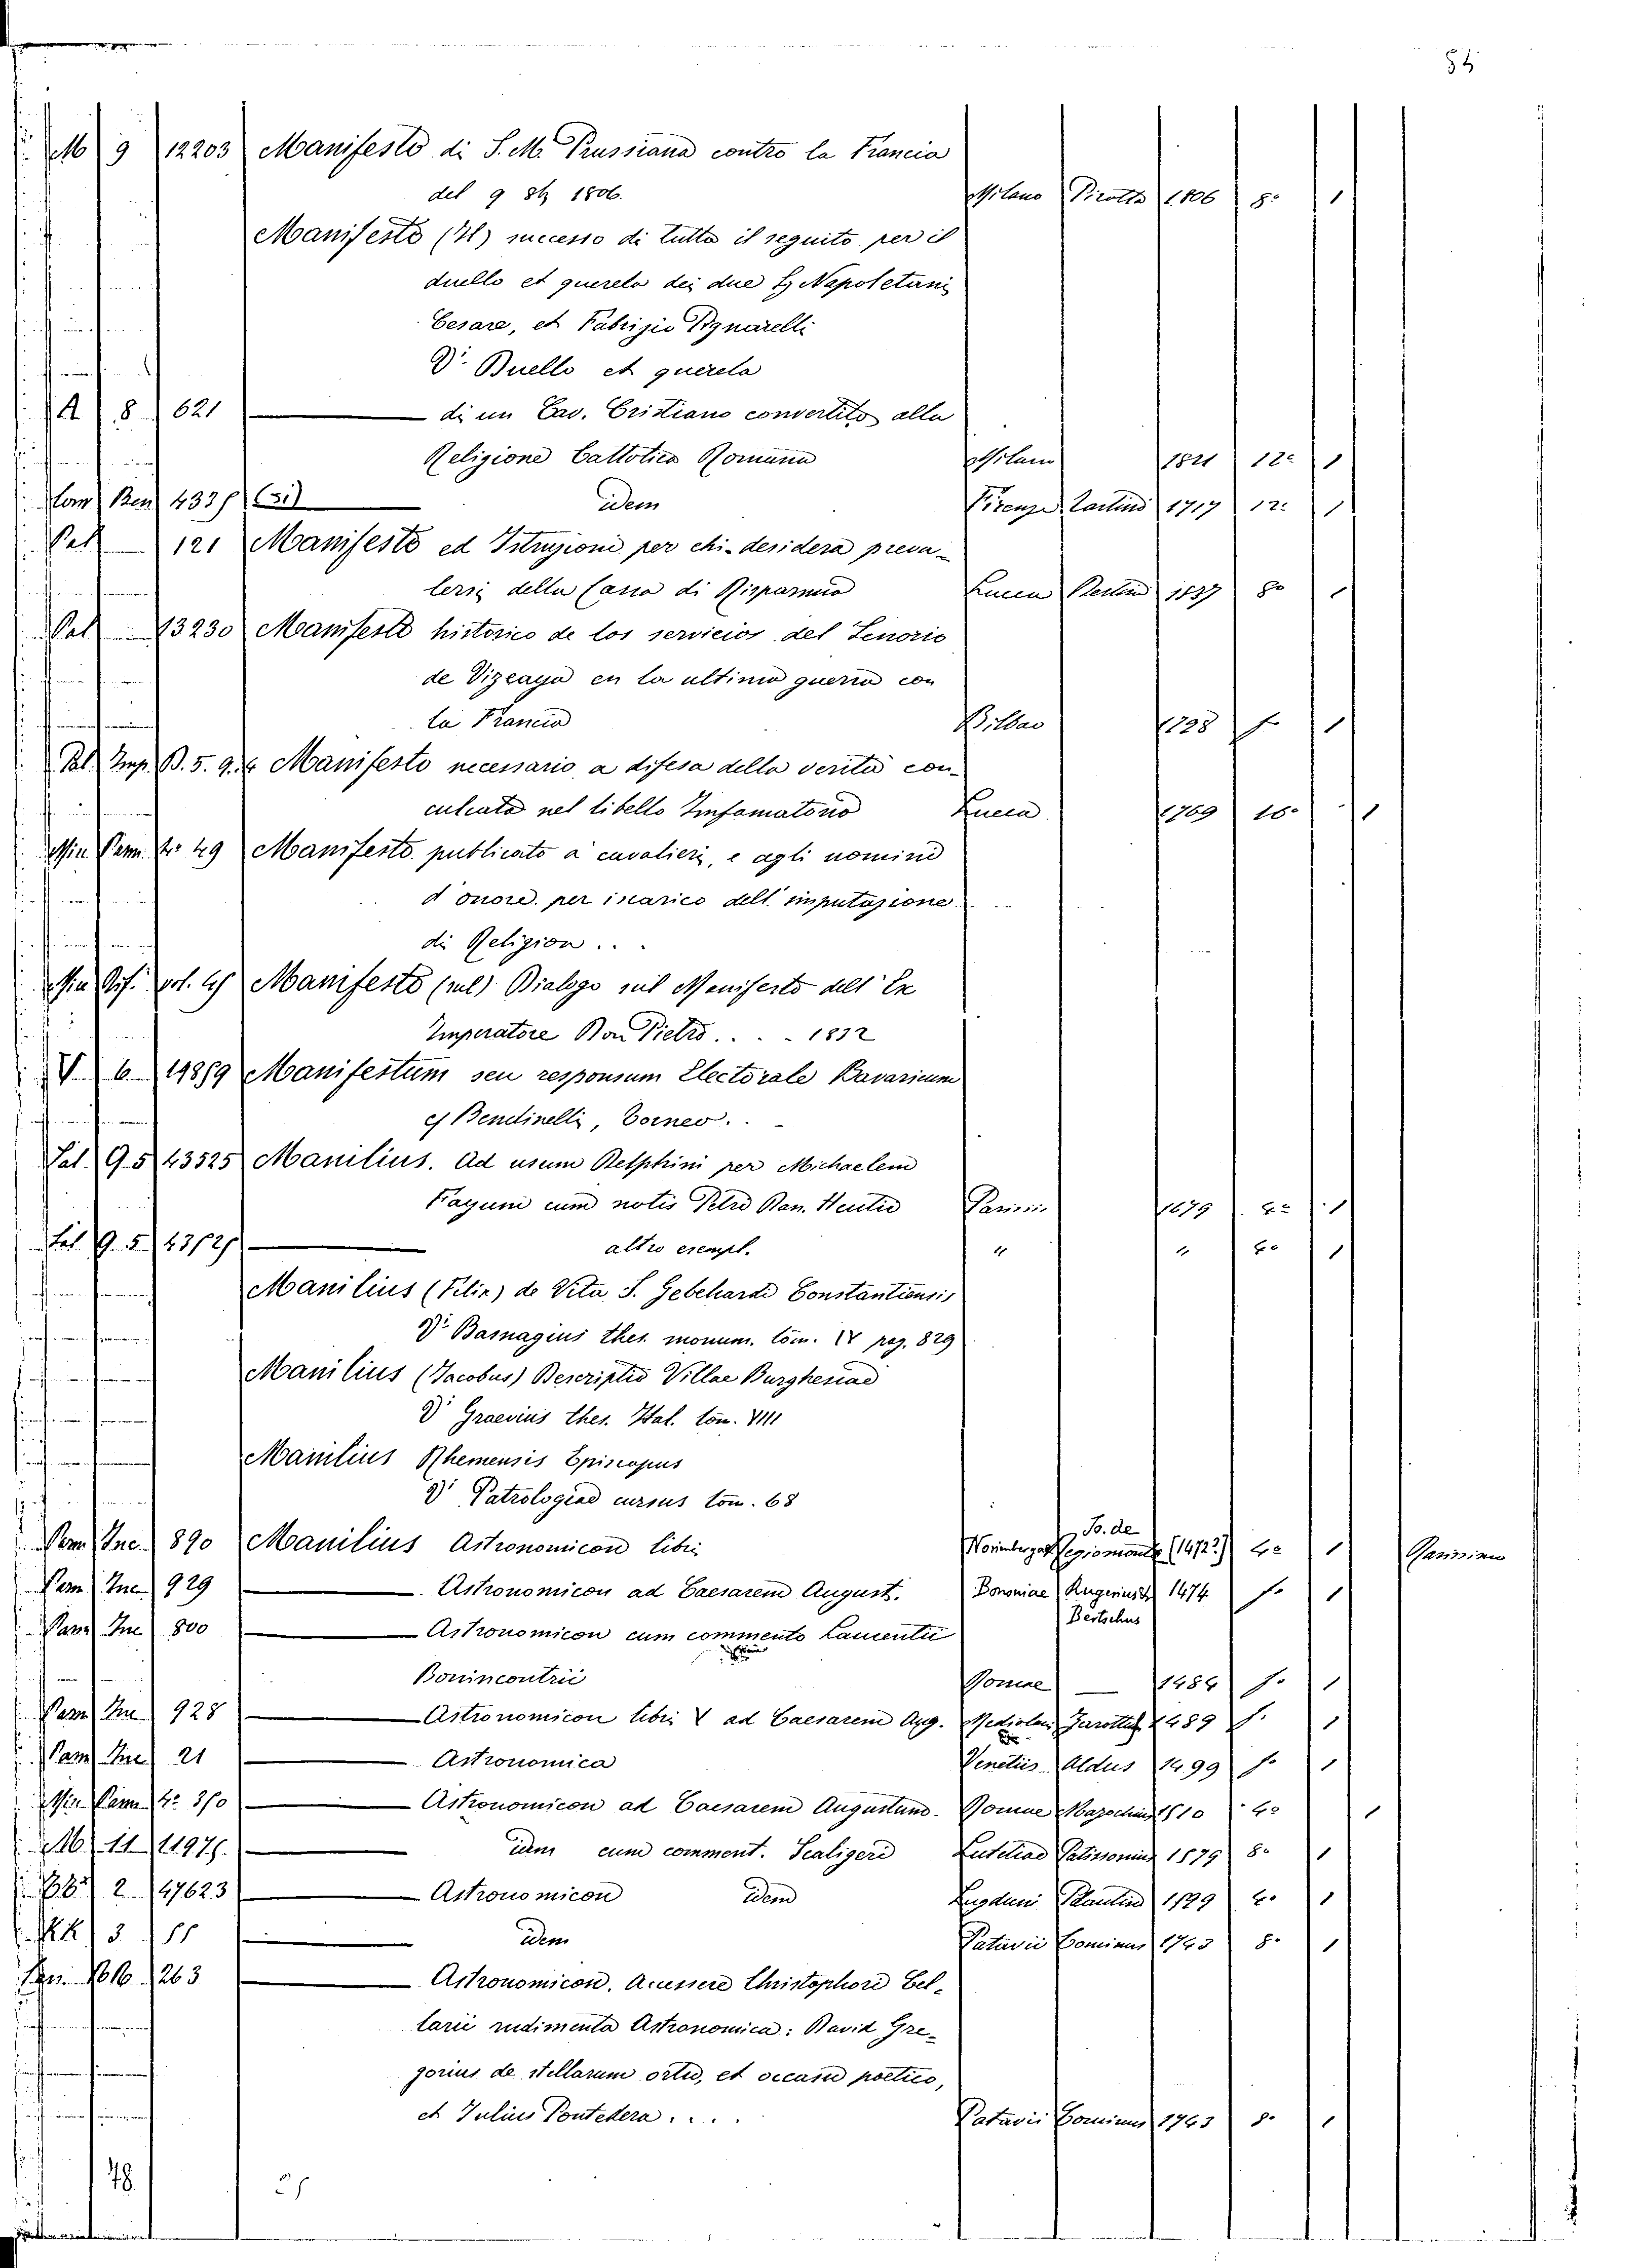 54
M 9 12203 Manifesto di S. M. Prussiana contro la Francia
del 9 8b 1806. Milano Pirotta 1806 8° 1
Manifesto (Il) successo di tutto il seguito per il
duello et querela dei due Napoletani
Cesare, et Fabrizio Pignarelli
V. Duello et querela
A 8 621 di un Cav. Cristiano convertito alla
Religione Cattolica Romana Milano 1821 12° 1
Ben 433 idem Firenze Tartini 1717 12° 1
Pal 121 Manifesto ed Istruzioni per chi desidera preva-
lersi della Cassa di Risparmio Lucca Bertini 1837 8° 1
Pal 13230 Manifesto historico de los servicios del Senorio
de Vizcaya en la ultima guerra con
la Francia Bilbao 1
Pal. Imp. B. 5. 9. Manifesto necessario a difesa della verità con-
culcata nel libello Infamatorio Lucca 1769 16° 1
Min Pam. 4° 49 Manifesto publicato a' cavalieri, e agli nomini
d'onore per incarico dell' imputazione
di Religion...
Manifesto (sul) Dialogo sul Manifesto dell' Ex
Imperatore Don Pietro.... 1832
V. 6 14889 Manifestum seu responsum Electorale Bavaricum
Bendinelli, Corneo..
Sal. G. 5 43525 Manilius. Ad usum Delphini per Michaelem
Fayum cum notis Petri Dan. Huetii Parisiis 1679 4° 1
Sal. G. 5 altro esempl. " " 4° 1
Manilius (Felix) de Vita S. Gebehardi Constantiensis
V. Basnagius thes. monum. tom. IV pag. 829
Manilius (Jacobus) Descriptio Villae Burghesiae
V. Graevius thes. Ital. tom. VIII
Manilius Rhemensis Episcopus
V. Patrologiae cursus tom. 68
Pam Inc. 890 Manilius Astronomicon libri Norimbergae Jo. de Regiomonte (1472?) 4° 1 Parisina
Pam Inc. 929 Astronomicon ad Caesarem August. Bononiae Rugerius et Bertochus 1474 f° 1
Pam Inc 800 Astronomicon cum commento Laurentii
Bonincontrii Romae — 1484 f° 1
Pam Inc 928 Astronomicon libri V ad Caesarem Aug. Mediolani 1489 f. 1
Pam Inc 21 Astronomica Venetiis Aldus 1499 f° 1
Min Pam 4° 370 Astronomicon ad Caesarem Augustum. Romae Mazochius 1510 4° 1
M 11 1197 idem cum comment. Scaligeri Lutetiae Patissonius 1579 8° 1
2 47623 Astronomicon idem Lugduni Plantin 1599 4° 1
3 idem Patavii Cominus 1743 8° 1
263 Astronomicon. Accessere Christophori Cel-
larii rudimenta Astronomica: David Gre-
gorius de stellarum ortu, et occasu poetico,
et Julius Pontedera.... Patavii Cominus 1743 8° 1
48